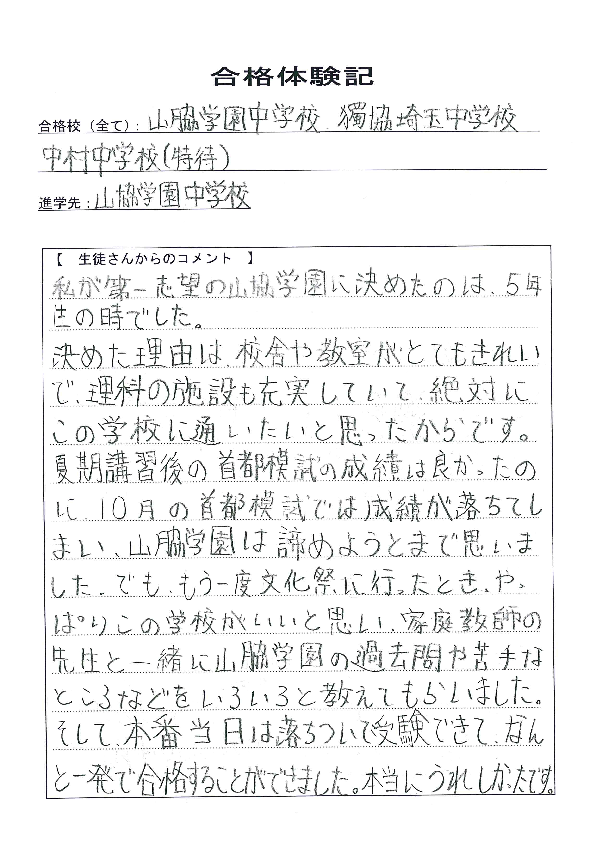 合格体験記
合格校（全て）：山脇学園中学校．獨協埼玉中学校
中村中学校(特待)
進学先：山脇学園中学校
【　生徒さんからのコメント　】
私が第一志望の山脇学園に決めたのは、5年
生の時でした。
決めた理由は、校舎や教室がとてもきれい
で、理科の施設も充実していて、絶対に
この学校に通いたいと思ったからです。
夏期講習後の首都模試の成績は良かったの
に10月の首都模試では成績が落ちてし
まい、山脇学園は諦めようとまで思いま
した。でも、もう一度文化祭に行ったとき、やっ
ぱりこの学校がいいと思い、家庭教師の
先生と一緒に山脇学園の過去問や苦手な
ところなどをいろいろと教えてもらいました。
そして、本番当日は落ちついて受験できて、なん
と一発で合格することができました。本当にうれしかったです。